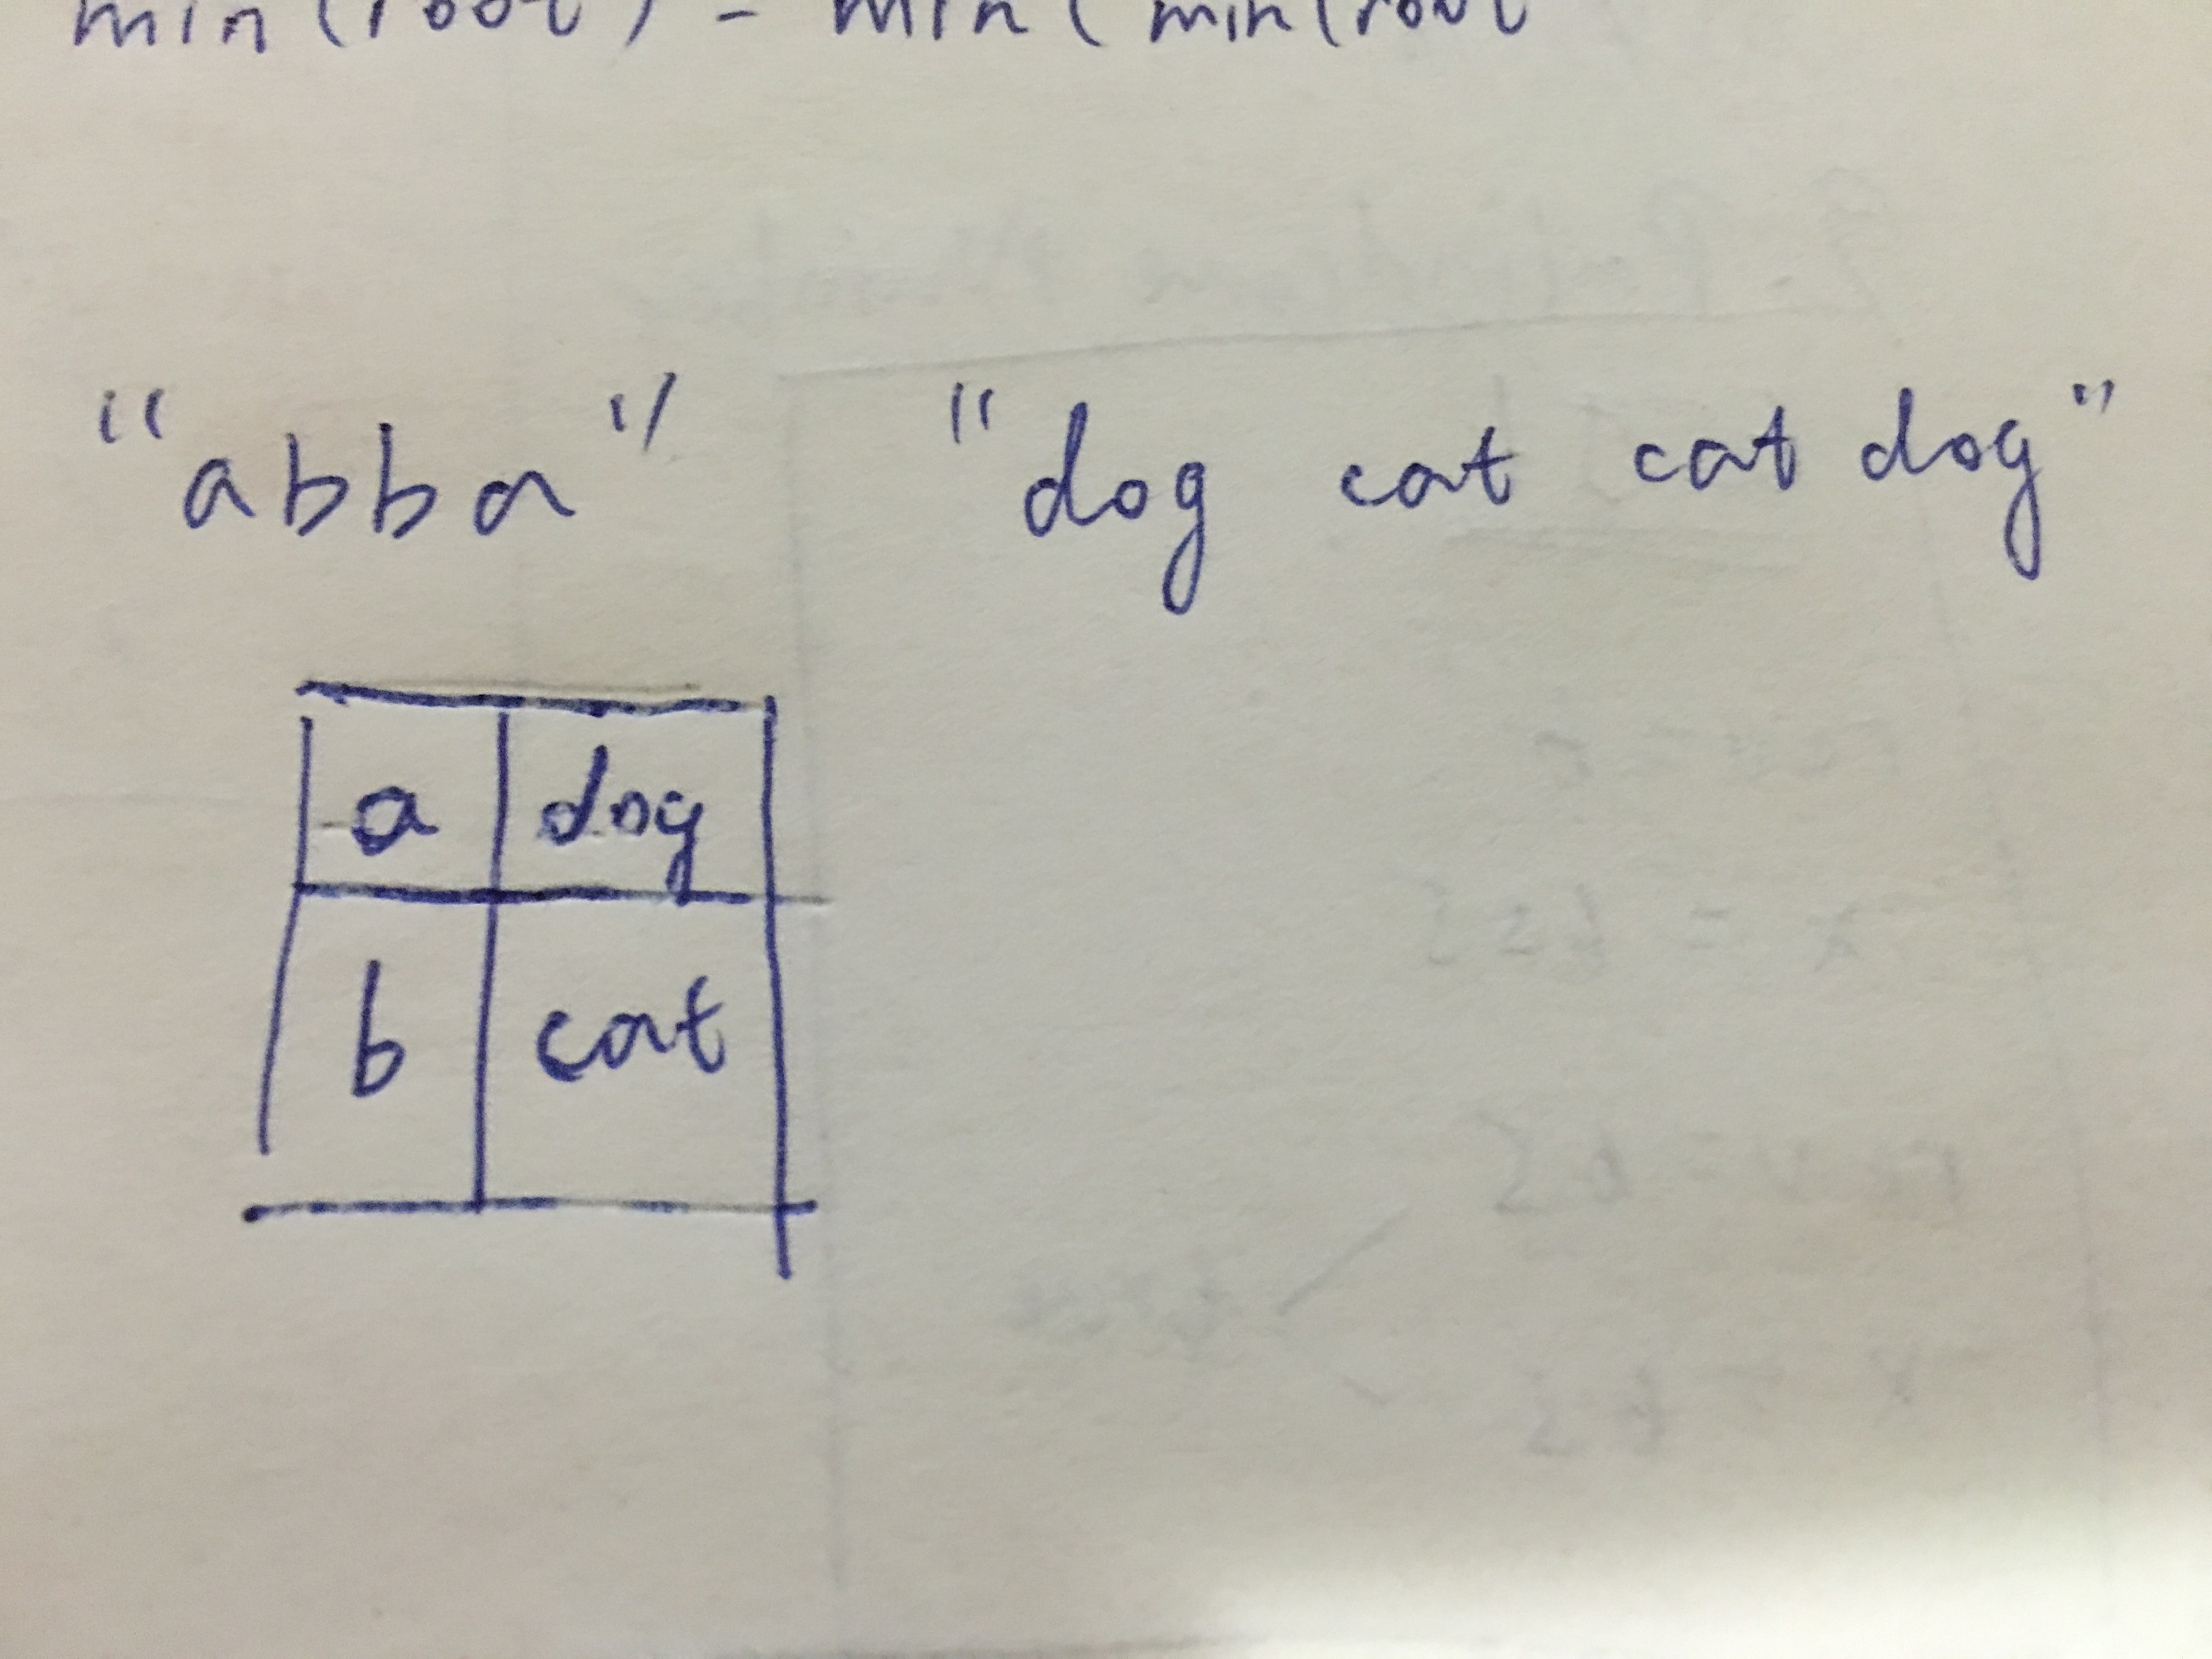 min(root) = min(min(root
"abba" "dog cat cat dog"
a dog
b cat